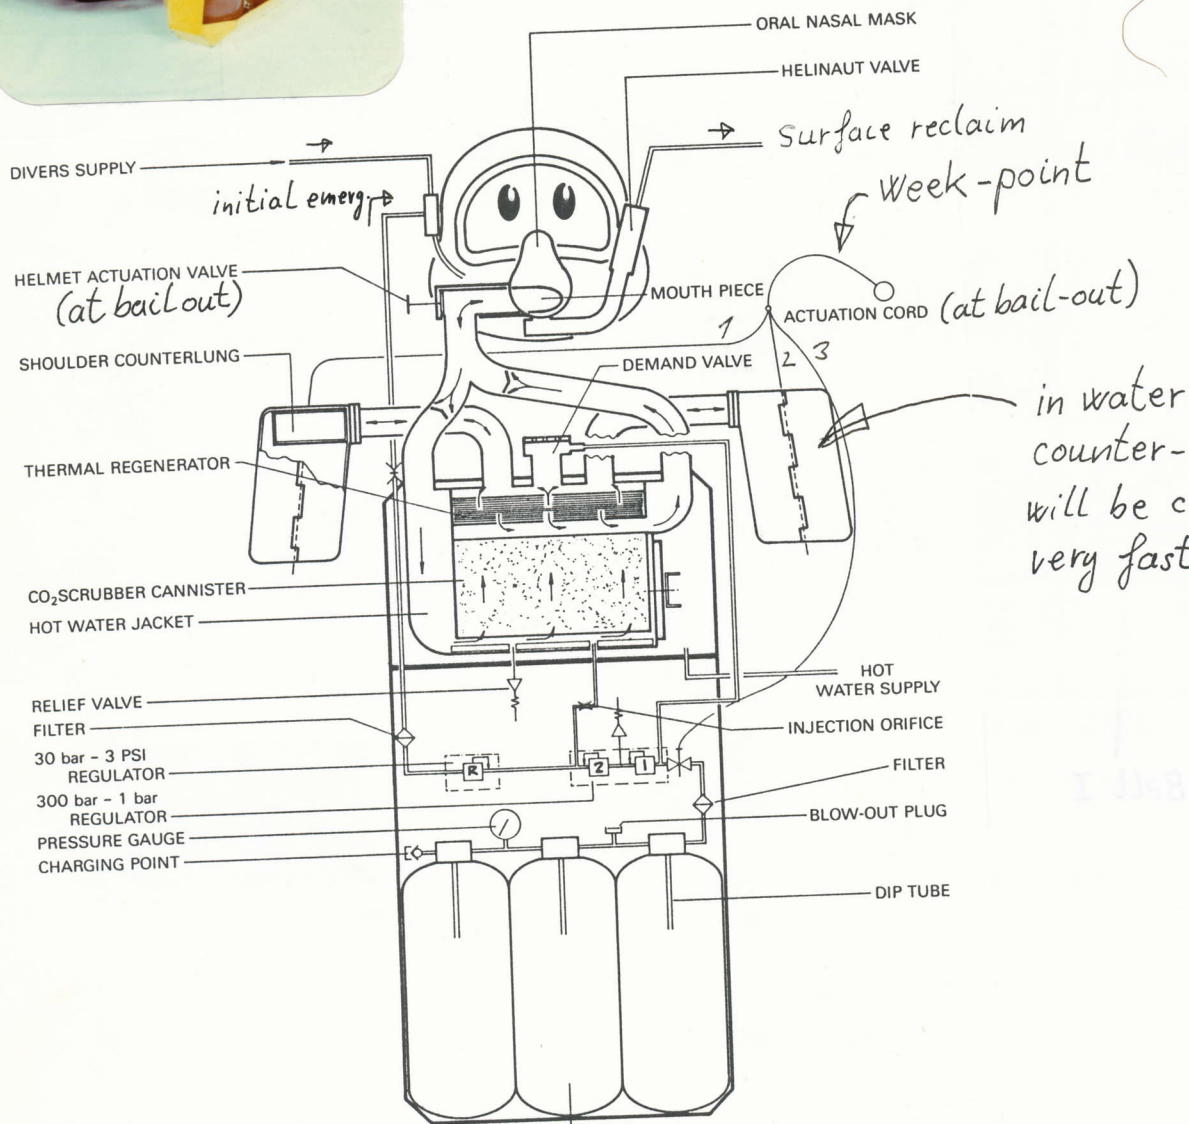 ORAL NASAL MASK
HELINAUT VALVE
surface reclaim
DIVERS SUPPLY
week-point
initial emerg.
HELMET ACTUATION VALVE
(at bail out)
MOUTH PIECE
ACTUATION CORD (at bail-out)
1
2 3
SHOULDER COUNTERLUNG
DEMAND VALVE
in water
counter-
will be c
very fast
THERMAL REGENERATOR
CO₂SCRUBBER CANNISTER
HOT WATER JACKET
HOT
WATER SUPPLY
RELIEF VALVE
FILTER
INJECTION ORIFICE
30 bar - 3 PSI
REGULATOR
R
2
1
FILTER
300 bar - 1 bar
REGULATOR
BLOW-OUT PLUG
PRESSURE GAUGE
CHARGING POINT
DIP TUBE